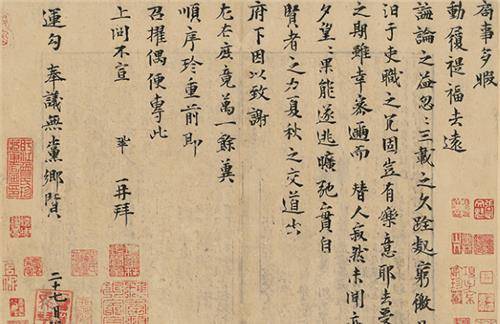 局事多暇
動履禔福去遠
誨論之益忽々三載之久跧處窮徼
汨于吏職之冗固豈有樂意耶去受
之期雖幸密邇而替人寂然未聞亦
夕望々果能遂逃曠弛實自
賢者之力夏秋之交道出
府下因以致謝
左右庶竟萬一餘冀
順序珍重前即
召擢偶便專此
上問不宣 鞏 再拜
運勾 奉議無黨鄉賢
二十七日